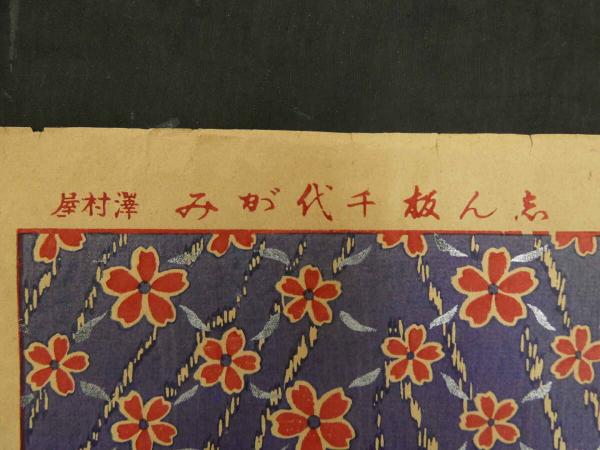 志ん板千代がみ 澤村屋